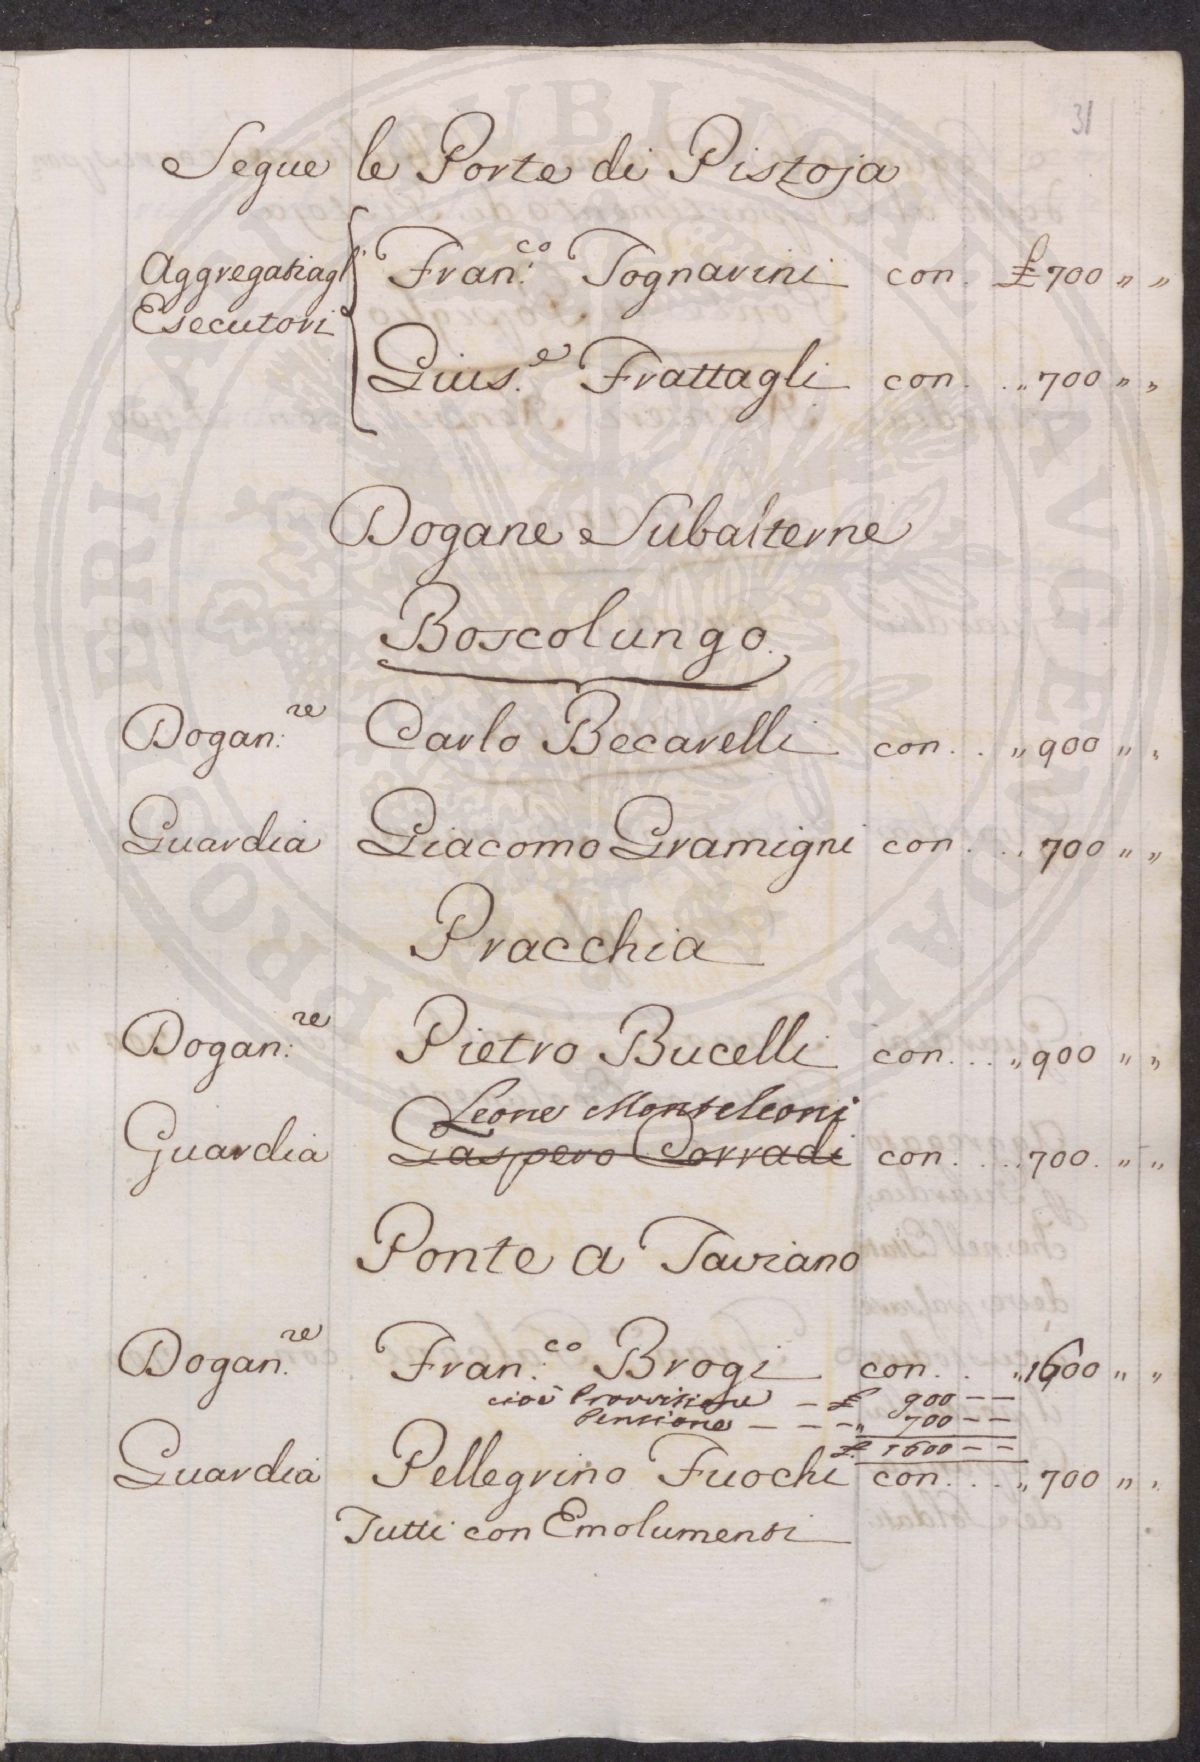 31
Segue le Porte di Pistoja
Aggregati agl'
Esecutori
Fran:co Tognarini con . £ 700 " "
Gius.e Frattagli con . . " 700 " "
Dogane Subalterne
Boscolungo.
Dogan:re Carlo Becarelli con . . " 900 " "
Guardia Giacomo Gramigni con . . . 700 " "
Pracchia
Dogan:re Pietro Bucelli con . . . " 900 " "
Leone Monteleoni
Guardia Gaspero Corradi con . . . . 700 . " "
Ponte a Taviano
Dogan:re Fran:co Brogi con . . " 1600 " "
cioè Provvisione — £ 900 — —
Pensione — — — " 700 — —
£ 1600 — —
Guardia Pellegrino Fuochi con . . . " 700 " "
Tutti con Emolumenti
PROSPERITATI PUBLICAE AUGENDAE